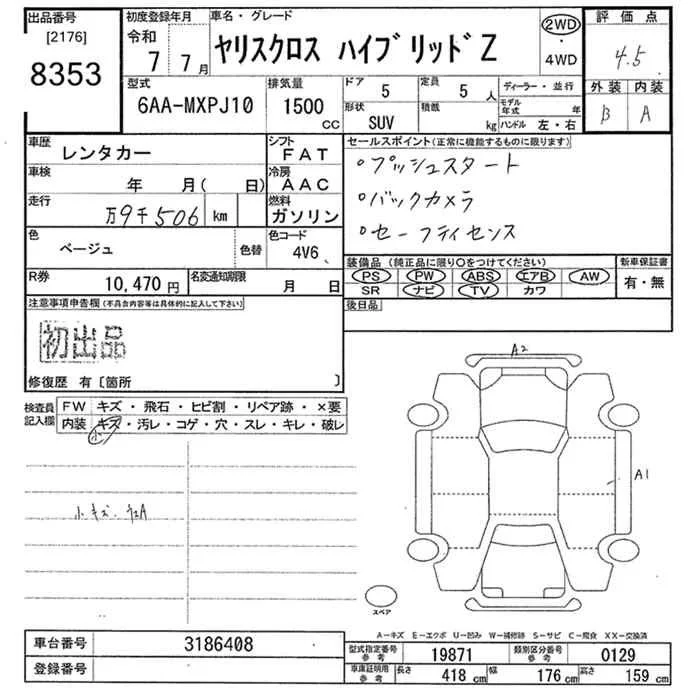 出品番号
[2176]
8353
初度登録年月
令和 7年 7月
車名・グレード
ヤリスクロス ハイブリッドZ
2WD
・
4WD
評価点
4.5
外装 内装
B A
型式
6AA-MXPJ10
排気量
1500 CC
ドア 5
定員 5人
形状 SUV
積載 kg
ディーラー・並行
モデル年式 年
ハンドル 左・右
車歴
レンタカー
シフト
FAT
車検
年 月( 日)
冷房
AAC
走行
万9千506 km
燃料
ガソリン
色
ベージュ
色替
色コード
4V6
R券
10,470 円
名変通知期限
月 日
セールスポイント(正常に機能するものに限ります)
・プッシュスタート
・バックカメラ
・セーフティセンス
装備品(純正品に限り○をつけてください)
PS PW ABS エアB AW
SR ナビ TV カワ
新車保証書
有・無
後日品
注意事項申告欄(不具合内容等は具体的に記入して下さい)
初出品
修復歴 有〔箇所 〕
検査員記入欄
FW キズ・飛石・ヒビ割・リペア跡・×要
内装 キズ・汚レ・コゲ・穴・スレ・キレ・破レ
小
小キズ.
A2
A1
スペア
A-キズ E-エクボ U-凹み W-補修跡 S-サビ C-腐食 XX-交換済
車台番号 3186408
登録番号
型式指定番号 参考 19871
類別区分番号 参考 0129
車庫証明用 参考 長さ 418 cm 幅 176 cm 高さ 159 cm